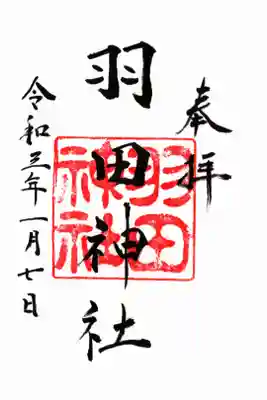 奉拝
羽田神社
羽田神社
令和三年一月七日